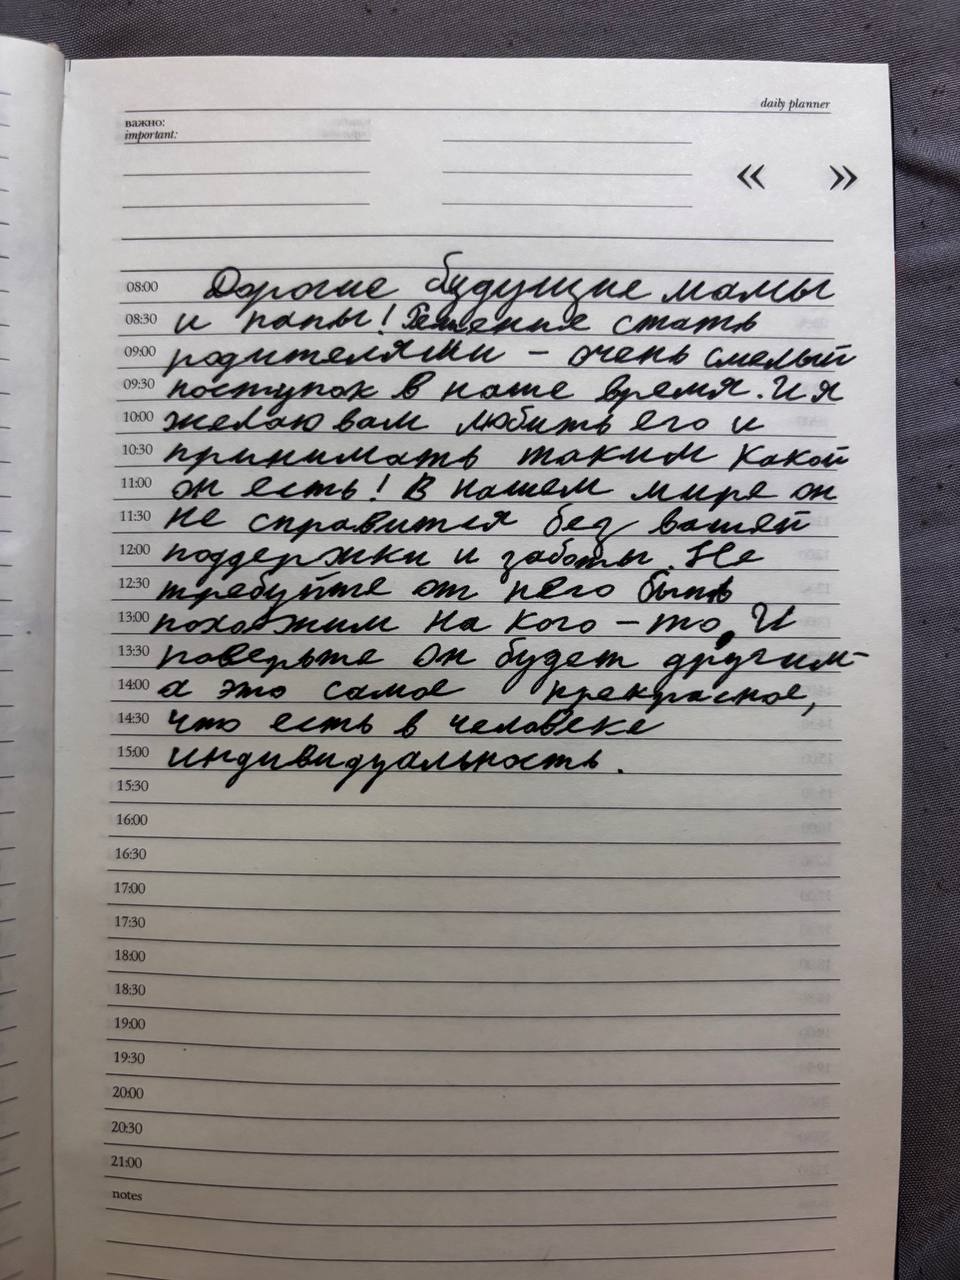 daily planner
важно:
important:
« »
08:00 Дорогие будущие мамы
08:30 и папы! Решение стать
09:00 родителями – очень смелый
09:30 поступок в наше время. И я
10:00 желаю вам любить его и
10:30 принимать таким какой
11:00 он есть! В нашем мире он
11:30 не справится без вашей
12:00 поддержки и заботы. Не
12:30 требуйте от него быть
13:00 похожим на кого-то. И
13:30 поверьте он будет другим-
14:00 а это самое прекрасное,
14:30 что есть в человеке
15:00 индивидуальность.
15:30
16:00
16:30
17:00
17:30
18:00
18:30
19:00
19:30
20:00
20:30
21:00
notes